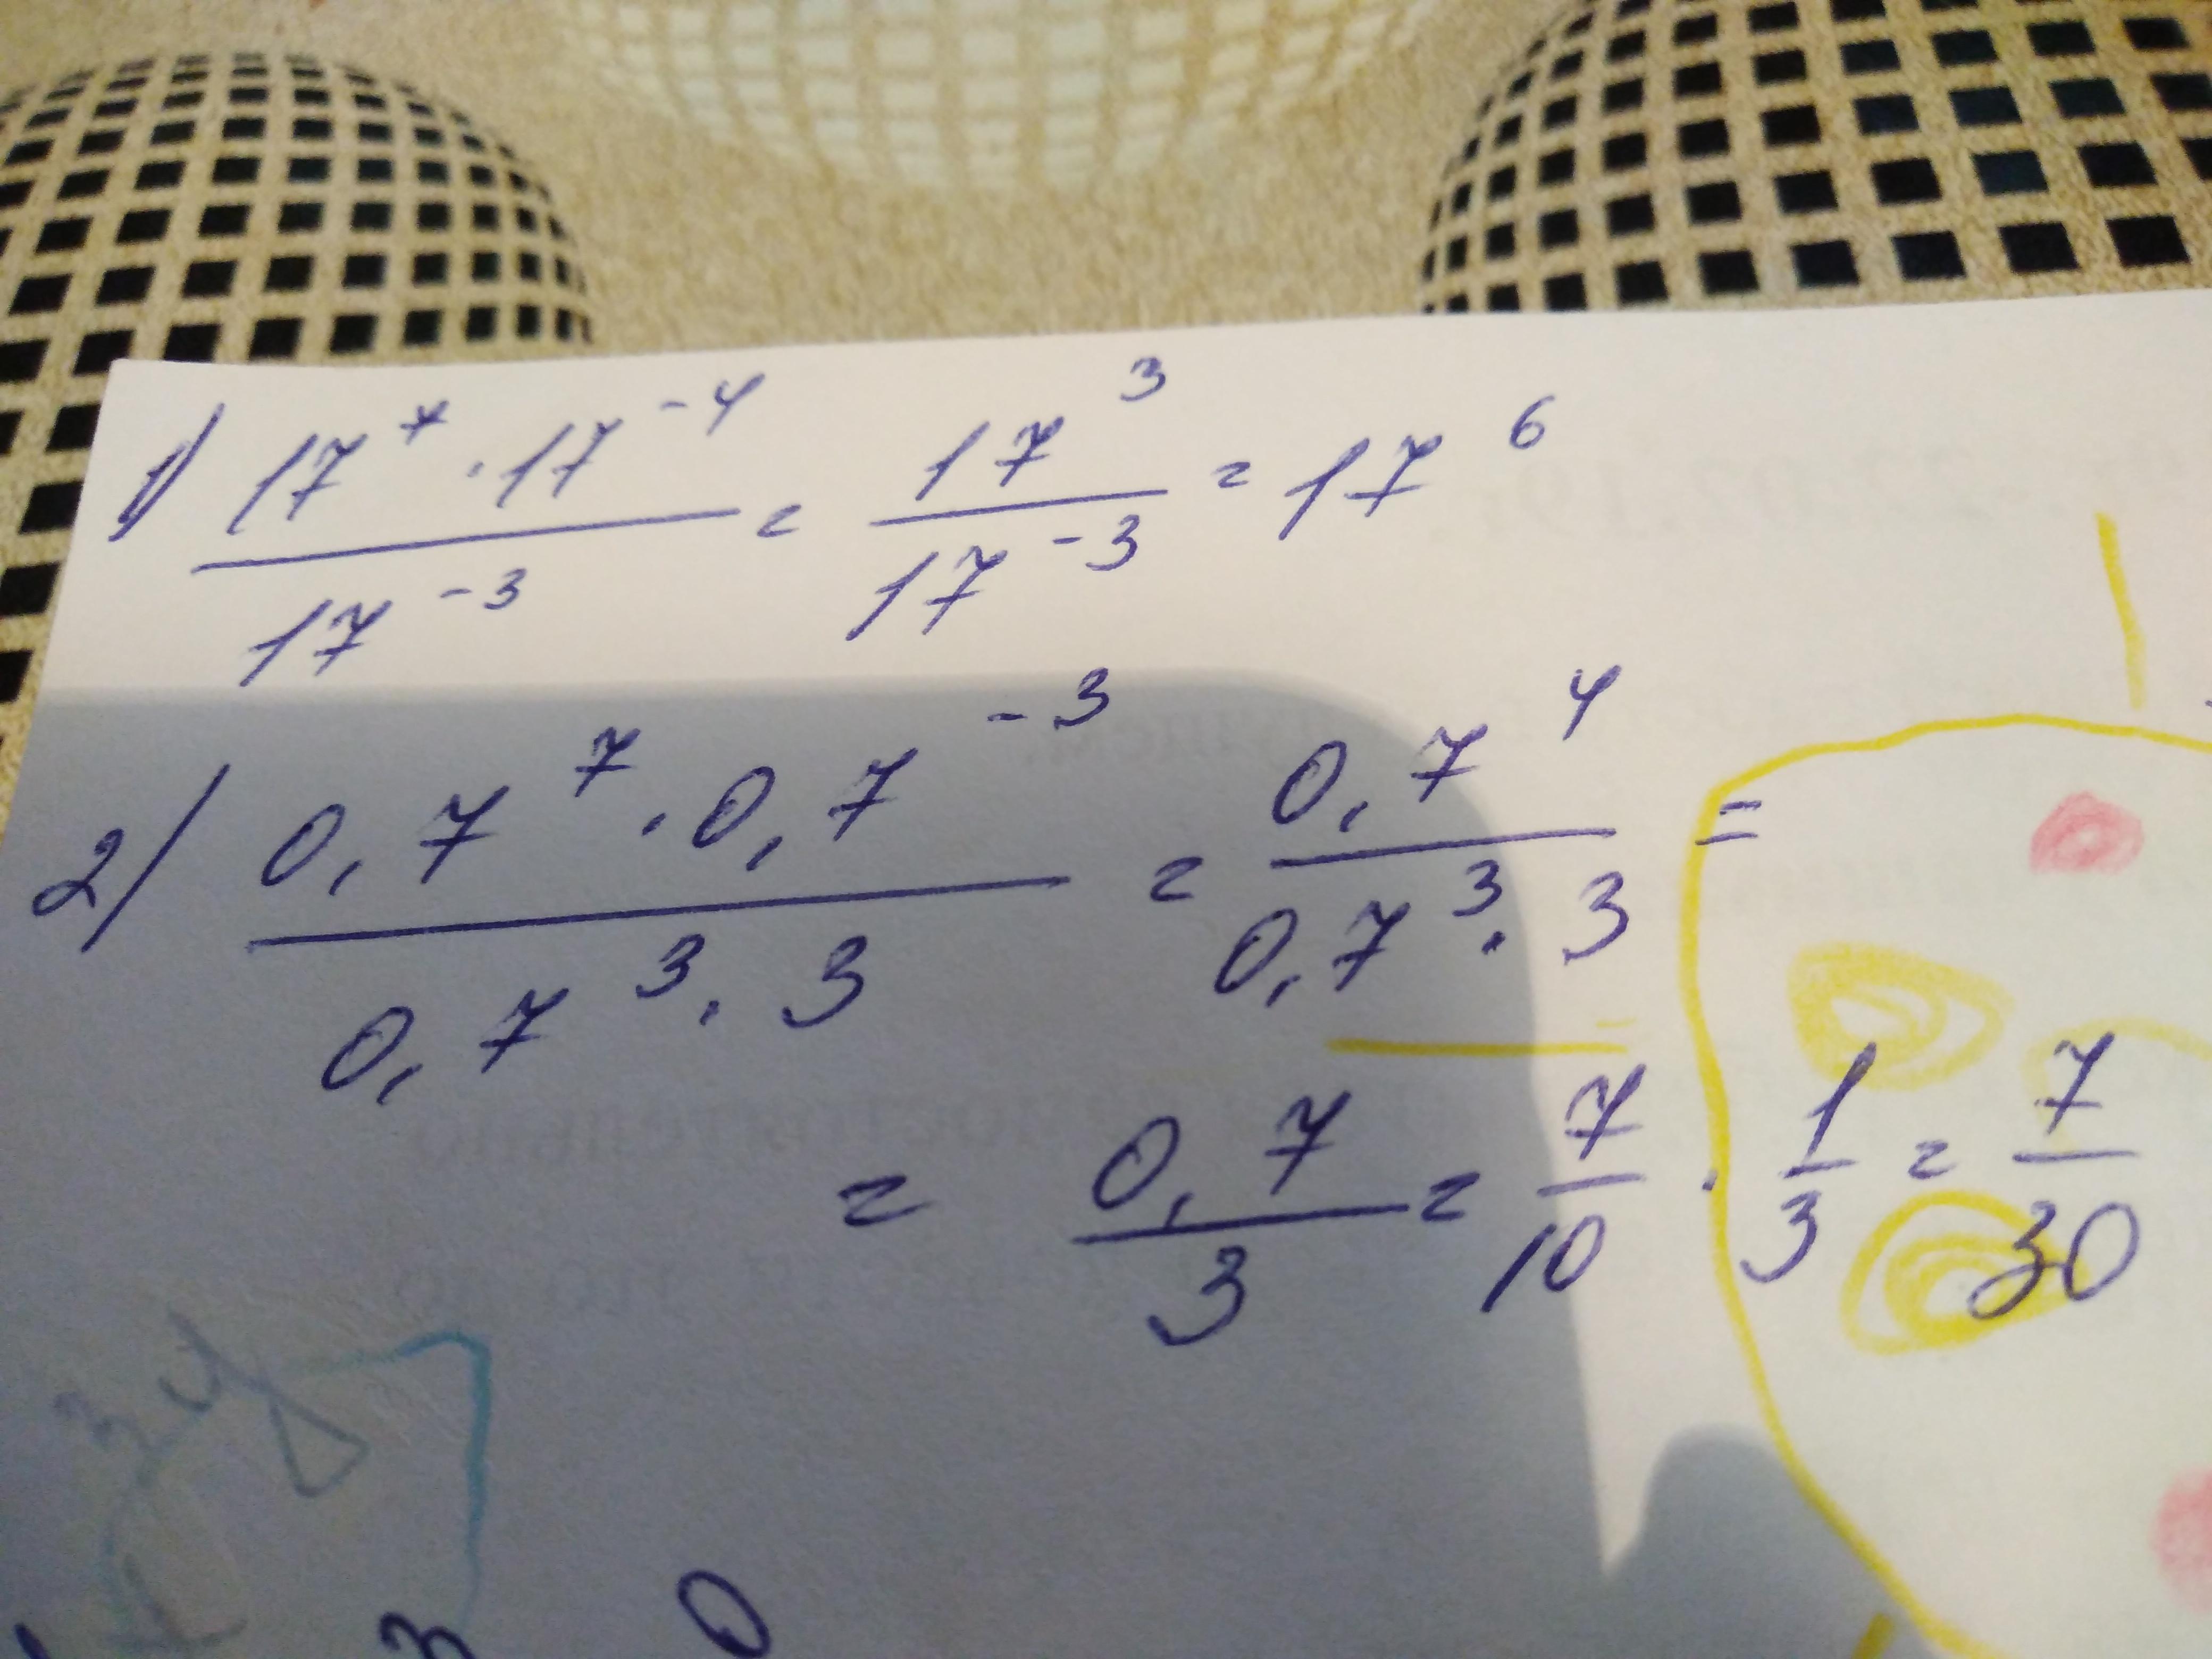 1) (17^7 · 17^-4) / 17^-3 = 17^3 / 17^-3 = 17^6
2) (0,7^7 · 0,7^-3) / (0,7^3 · 3) = 0,7^4 / (0,7^3 · 3) =
= 0,7 / 3 = 7/10 · 1/3 = 7/30